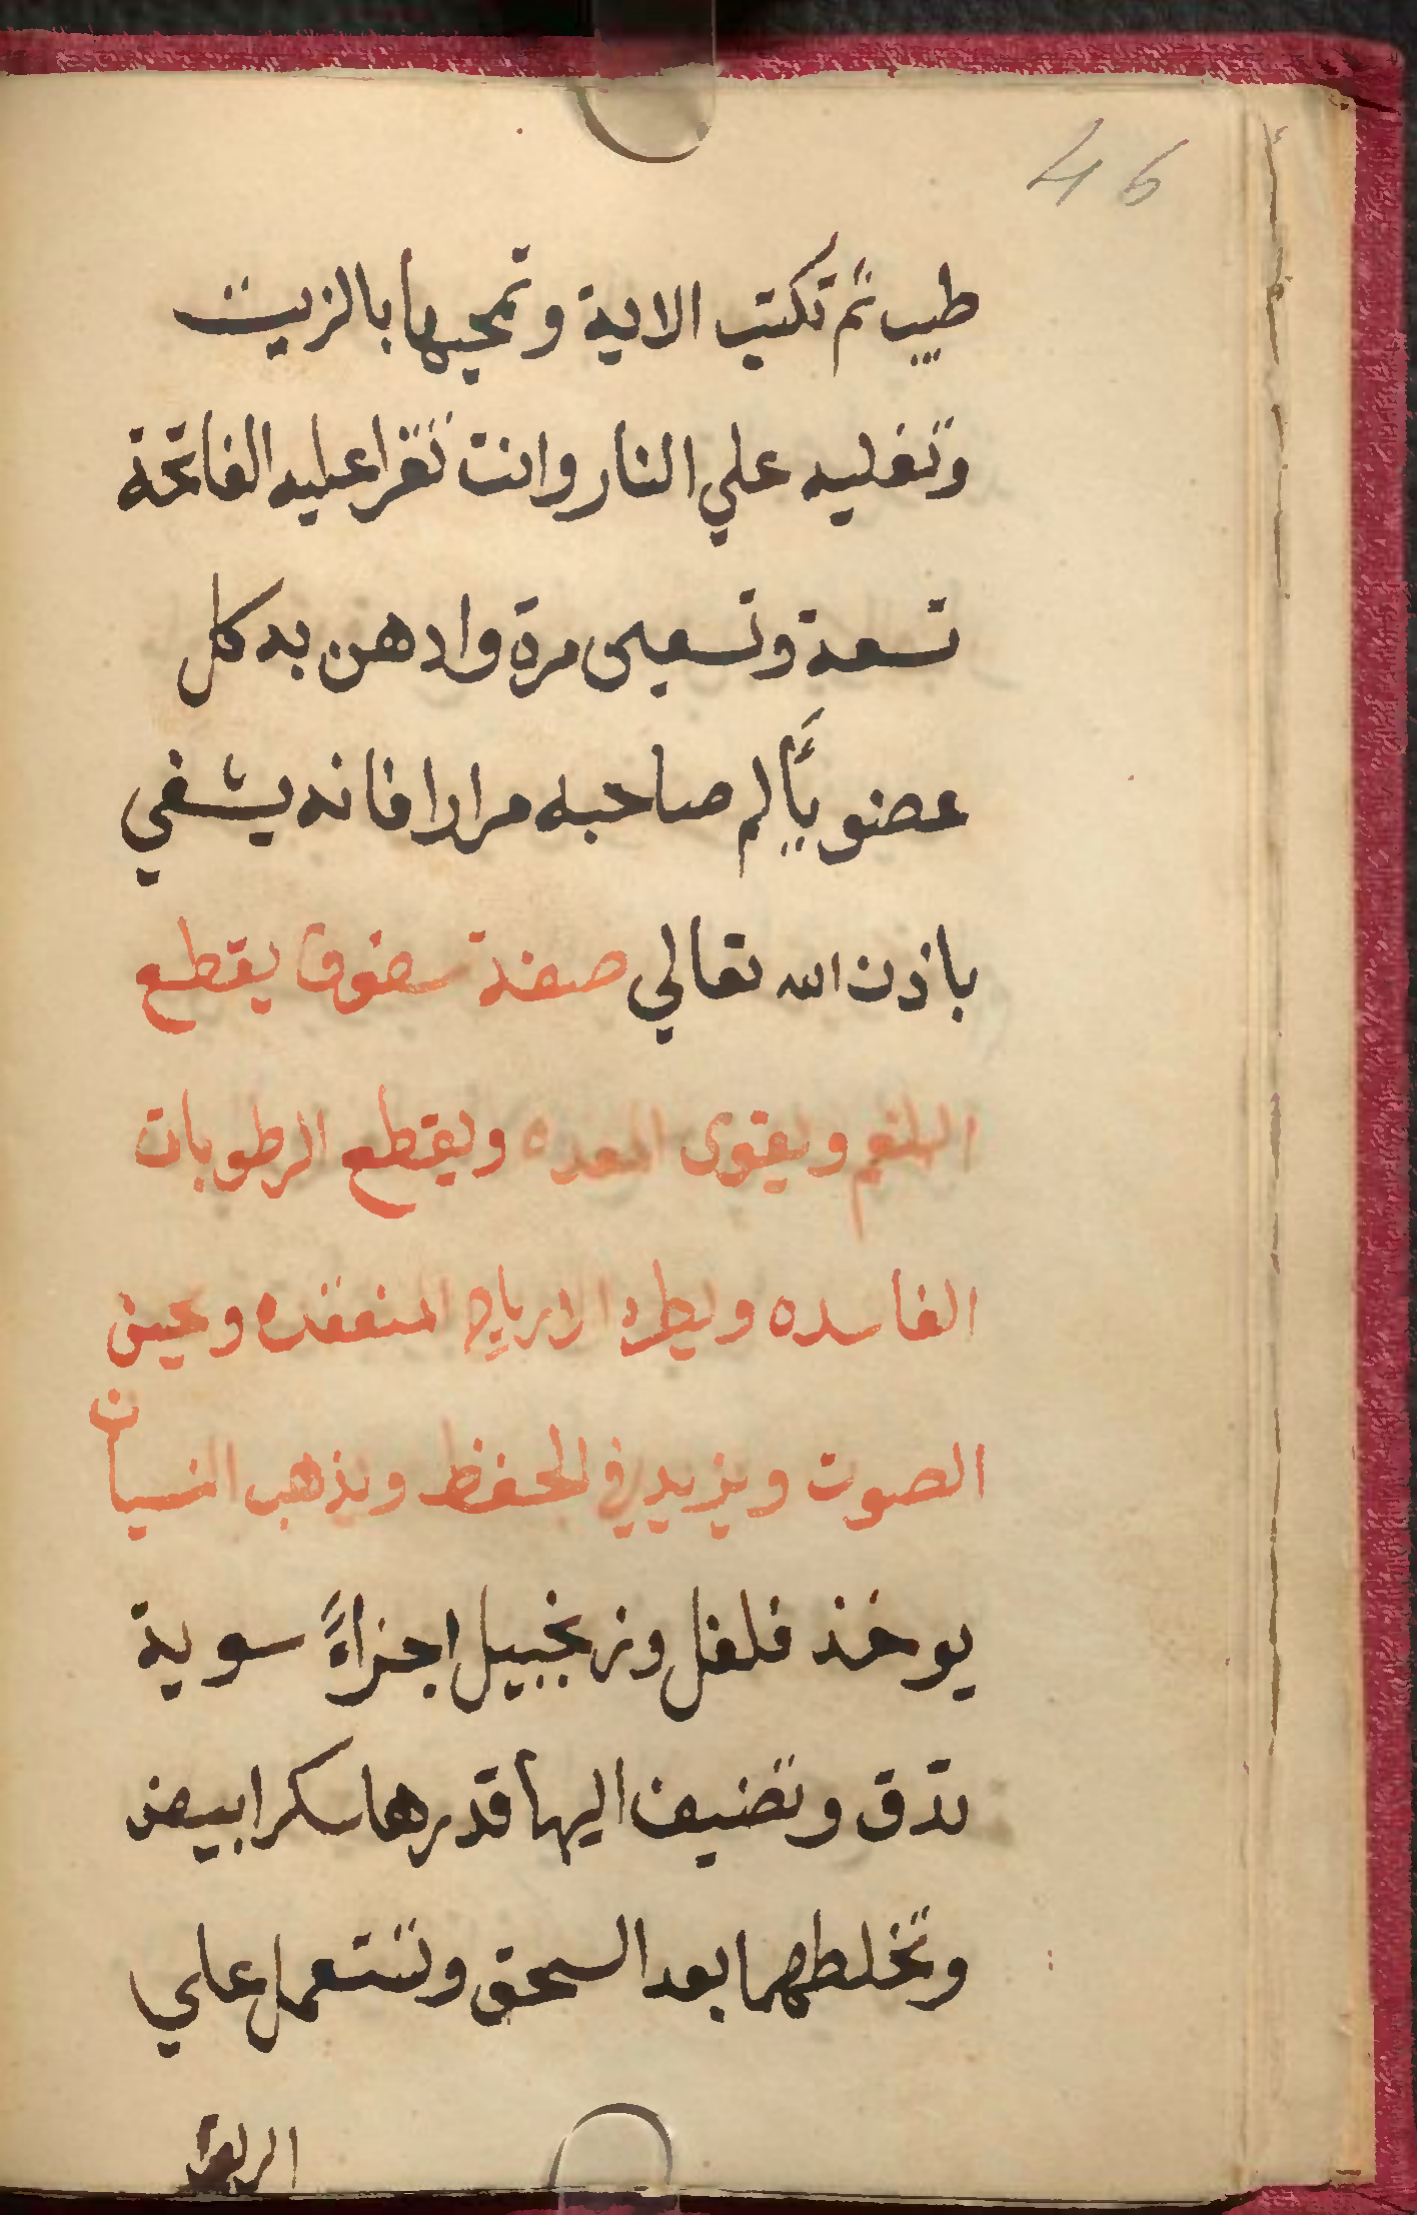 46
طيب ثم تكتب الاية وتمحيها بالزيت
وتغليه علي النار وانت تقرا عليه الفاتحة
تسعة وتسعين مرة وادهن به كل
عضو يأَلم صاحبه مرارا فانه يشفي
باذن الله تعالي صفة سفوف يقطع
البلغم ويقوى المعده ويقطع الرطوبات
الفاسده ويطرد الارياح المنعقده و
الصوت ويزيد في الحفظ ويذهب النسيان
يوخذ فلفل وزنجبيل اجزاءً سوية
تدق وتضيف اليها قدرها سكرا ابيض
وتخلطهما بعد السحق وتستعمل علي
الريق